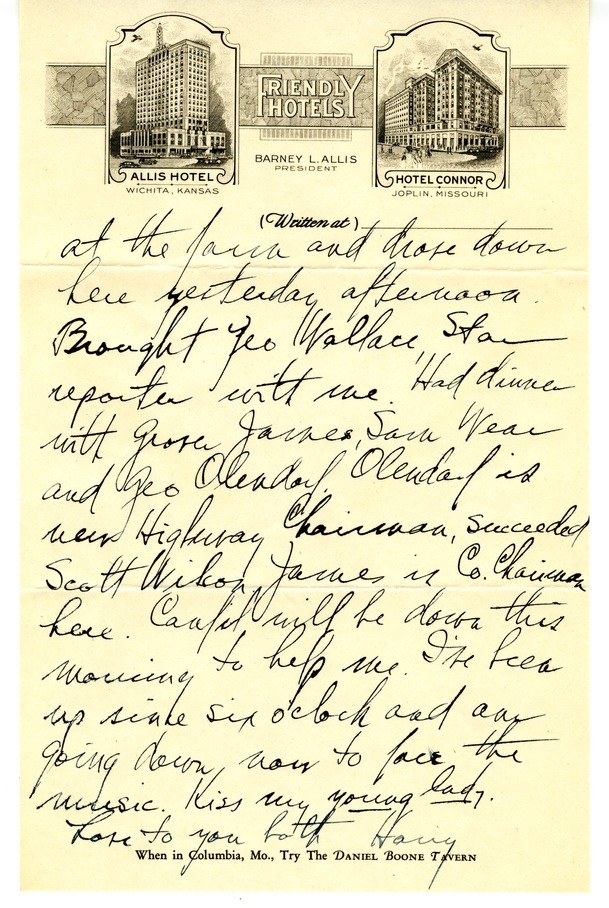 FRIENDLY
HOTELS
BARNEY L. ALLIS
PRESIDENT
ALLIS HOTEL
WICHITA, KANSAS
HOTEL CONNOR
JOPLIN, MISSOURI
(Written at)
at the farm and drove down
here yesterday afternoon.
Brought Geo Wallace, Star
reporter with me. Had dinner
with Grover James, Sam Wear
and Geo Olendorf. Olendorf is
new Highway Chairman, succeeded
Scott Wilson, James is Co. Chairman
here. Canfil will be down this
morning to help me. I've been
up since six o'clock and am
going down now to face the
music. Kiss my young lady.
Love to you both Harry
When in Columbia, Mo., Try The DANIEL BOONE TAVERN